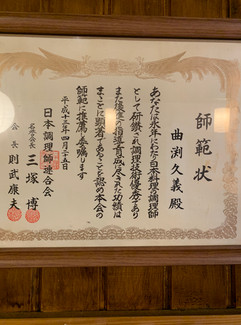 師範状
曲渕久義殿
あなたは永年にわたり日本料理の調理師
として研鑚され調理技術優秀であり
また後進の指導育成に尽された功績は
まことに顕著であることを認め本会の
師範に推薦し委嘱します
平成十三年四月二十五日
日本調理師連合会
名誉会長 三塚博
会長 則武康夫